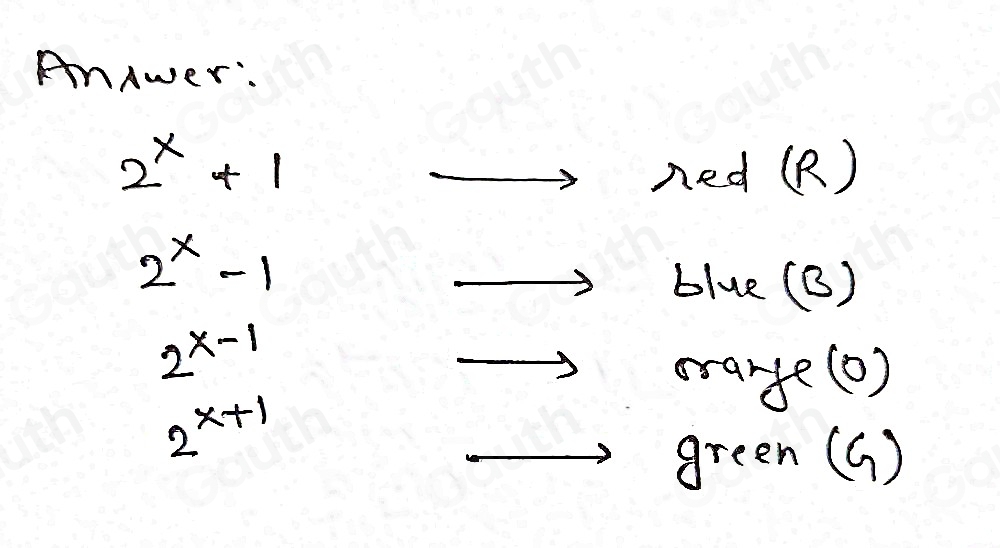 Answer:
2^x + 1 ⟶ red (R)
2^x - 1 ⟶ blue (B)
2^(x-1) ⟶ orange (O)
2^(x+1) ⟶ green (G)
Gauth